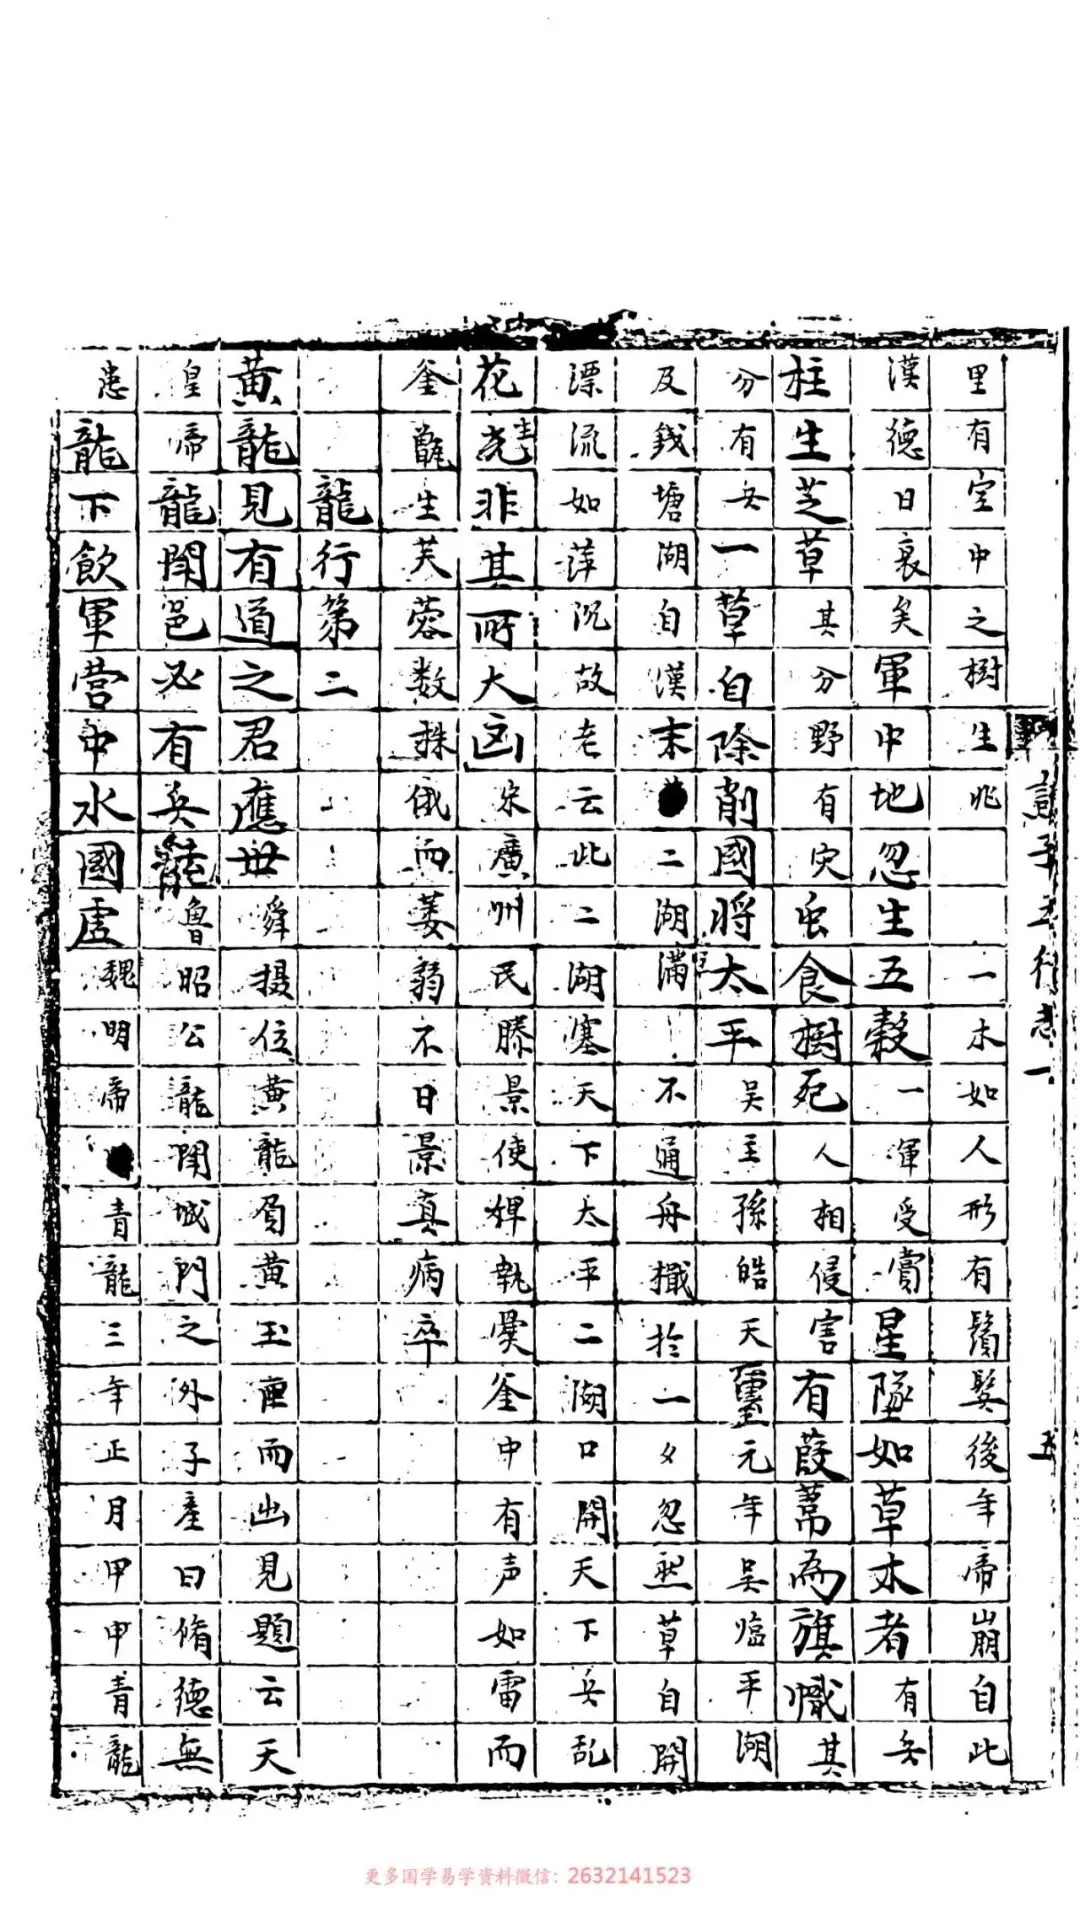 里有空中之樹生兆一木如人形有鬚髮後年帝崩自此
漢德日衰矣軍中地忽生五穀一軍受賞星墜如草木者有兵
柱生芝草其分野有灾虫食樹死人相侵害有葭蒿為旗幟其
分有兵一草自除削國將太平吳主孫皓天璽元年吳臨平湖
及錢塘湖自漢末二湖滿不通舟檝於一夕忽然草自開
漂流如萍沉故老云此二湖塞天下太平二湖口開天下兵乱
花尭非其所大凶宋廣州民滕景使婢執爨釜中有声如雷而
釜甑生芙蓉数株俄而萎弱不日景真病卒
龍行第二
黃龍見有道之君應世舜摄位黃龍負黃玉匣而出見題云天
皇帝龍鬥邑必有兵飢魯昭公龍鬥城門之外子產曰脩德無
患龍下飲軍營中水國虛魏明帝青龍三年正月甲申青龍
五行志一
五
更多国学易学资料微信：2632141523